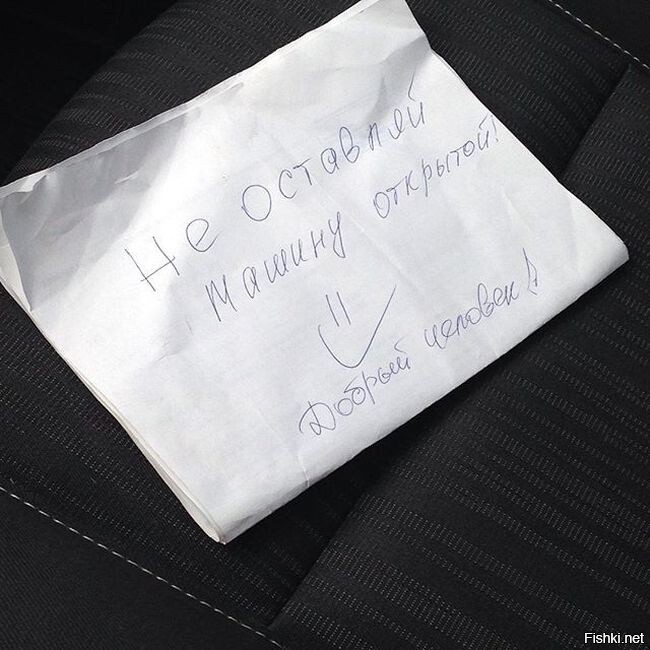 Не оставляй
машину открытой!
Добрый человек!
Fishki.net